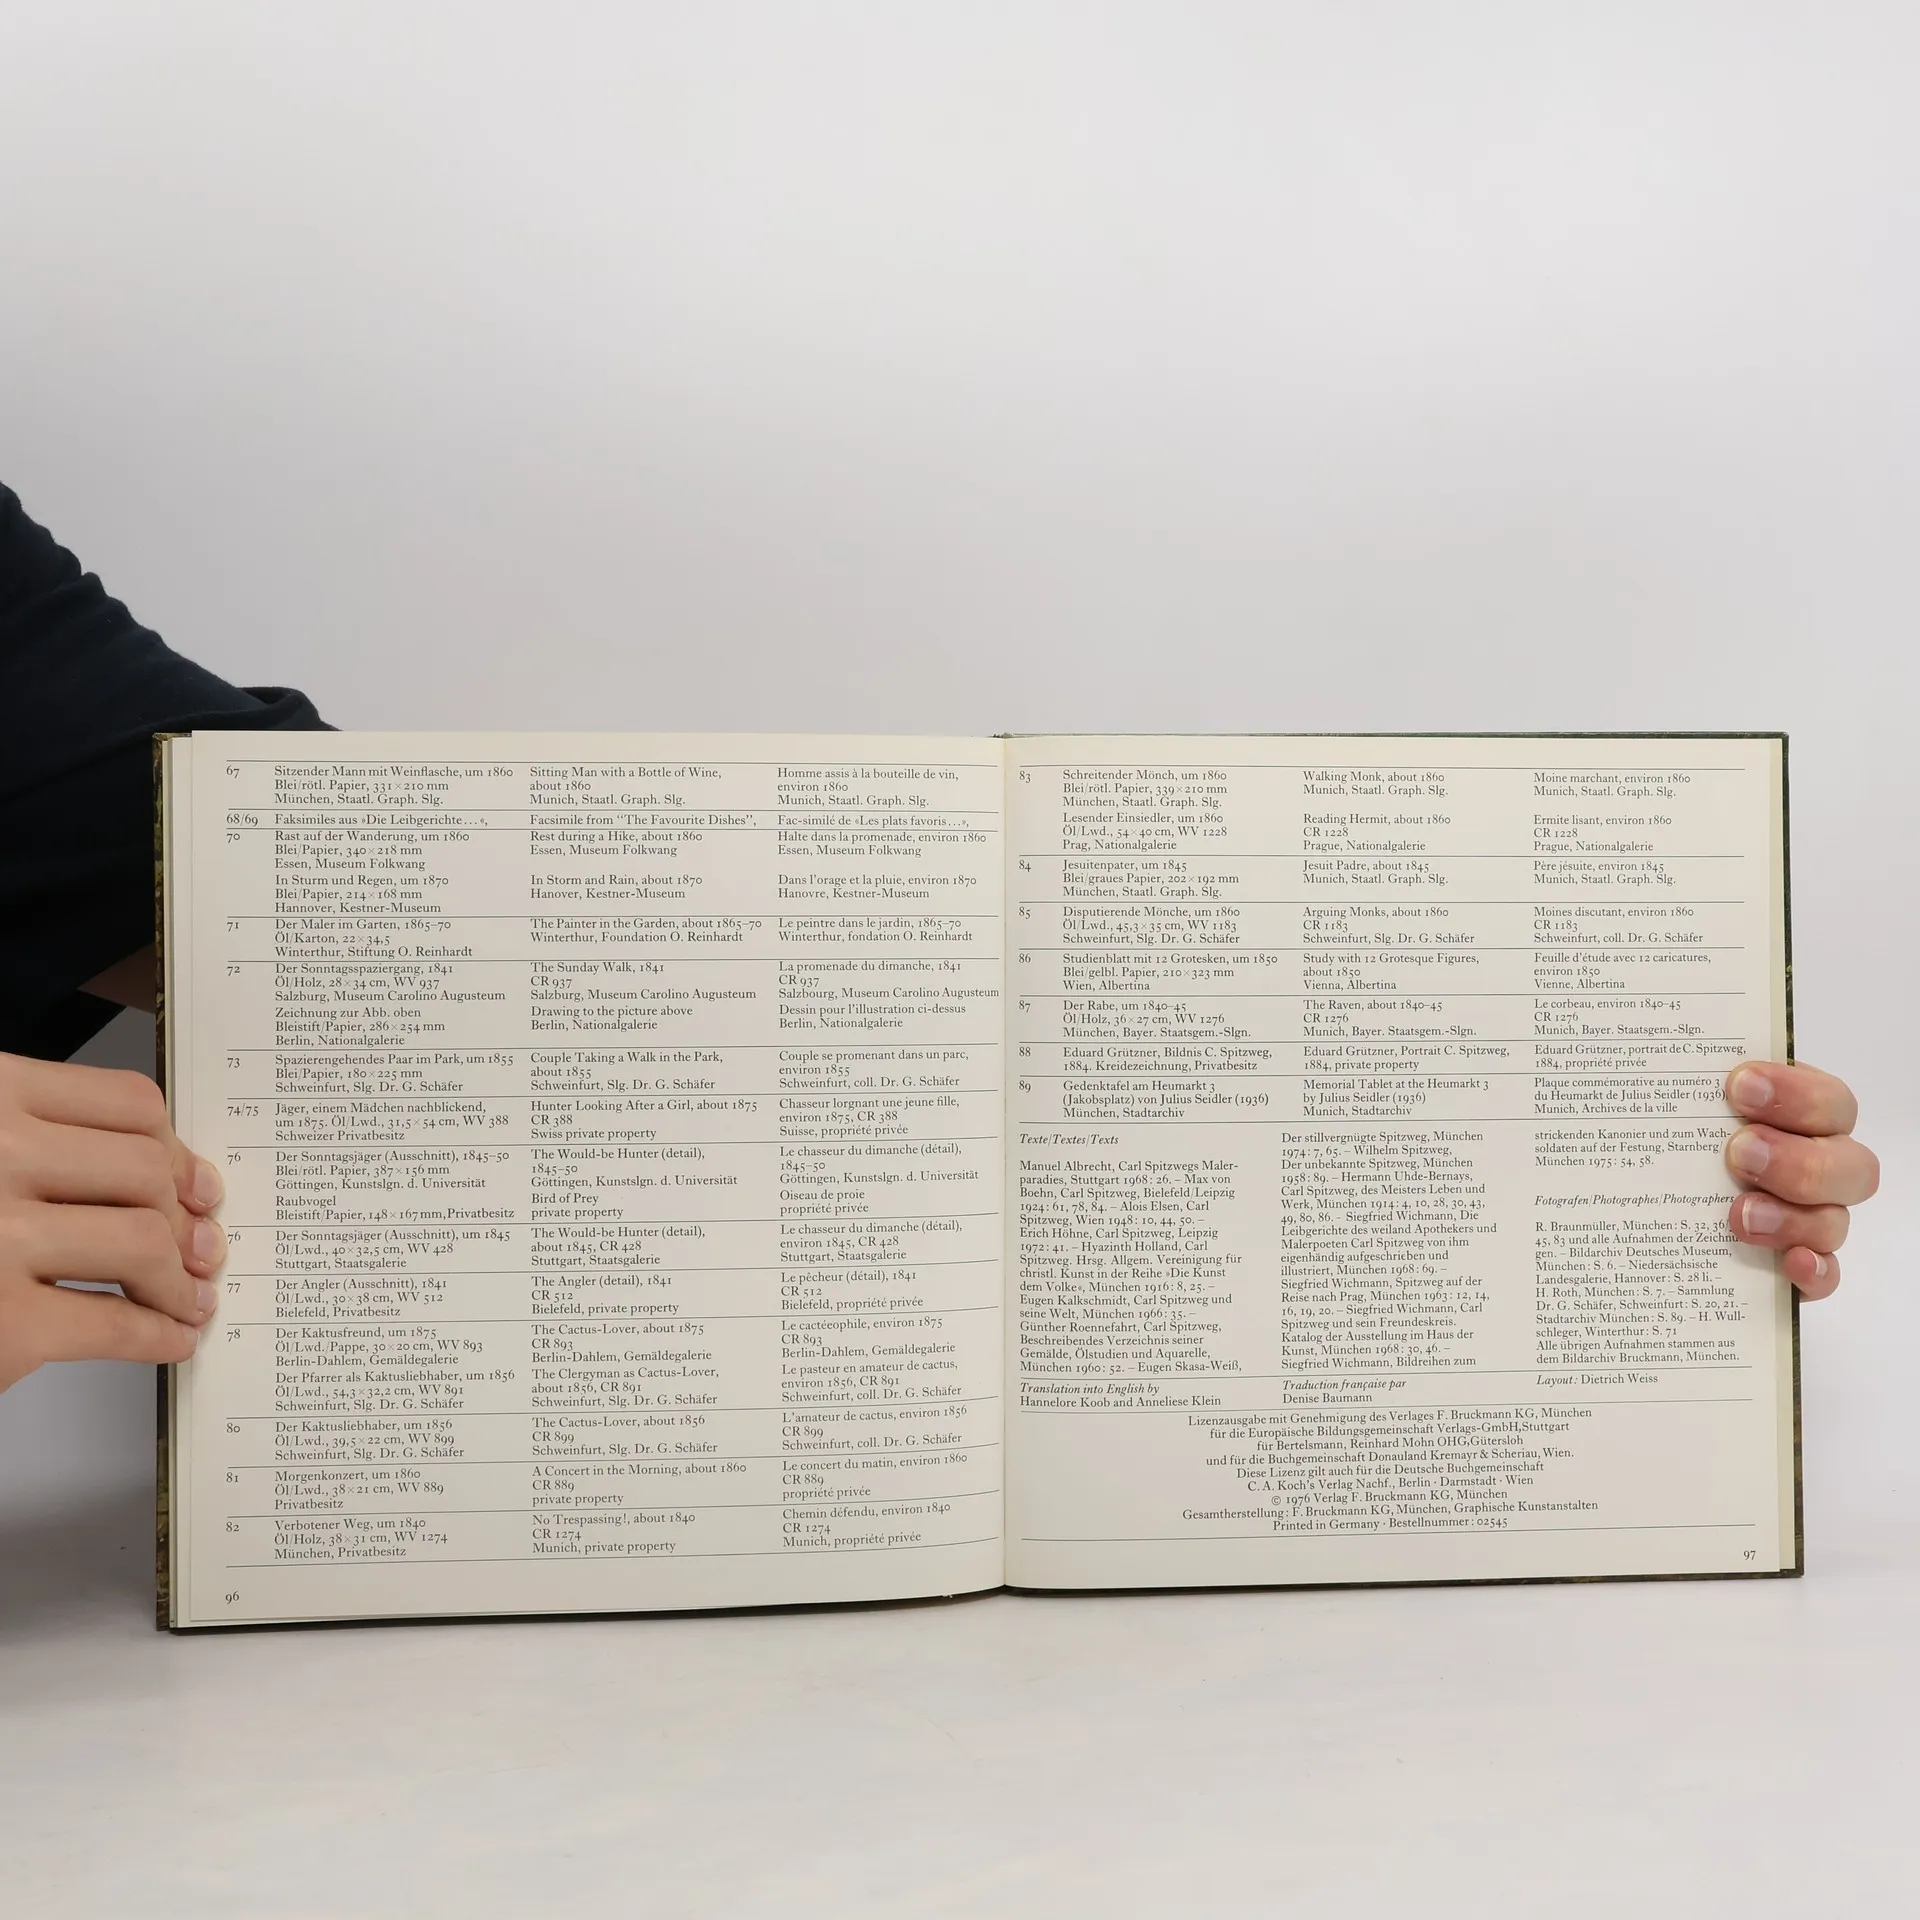 67
Sitzender Mann mit Weinflasche, um 1860
Blei/rötl. Papier, 331×210 mm
München, Staatl. Graph. Slg.
Sitting Man with a Bottle of Wine,
about 1860
Munich, Staatl. Graph. Slg.
Homme assis à la bouteille de vin,
environ 1860
Munich, Staatl. Graph. Slg.
68/69
Faksimiles aus »Die Leibgerichte…«,
Facsimile from “The Favourite Dishes”,
Fac-similé de «Les plats favoris…»,
70
Rast auf der Wanderung, um 1860
Blei/Papier, 340×218 mm
Essen, Museum Folkwang
Rest during a Hike, about 1860
Essen, Museum Folkwang
Halte dans la promenade, environ 1860
Essen, Museum Folkwang
In Sturm und Regen, um 1870
Blei/Papier, 214×168 mm
Hannover, Kestner-Museum
In Storm and Rain, about 1870
Hanover, Kestner-Museum
Dans l'orage et la pluie, environ 1870
Hanovre, Kestner-Museum
71
Der Maler im Garten, 1865–70
Öl/Karton, 22×34,5
Winterthur, Stiftung O. Reinhardt
The Painter in the Garden, about 1865–70
Winterthur, Foundation O. Reinhardt
Le peintre dans le jardin, 1865–70
Winterthur, fondation O. Reinhardt
72
Der Sonntagsspaziergang, 1841
Öl/Holz, 28×34 cm, WV 937
Salzburg, Museum Carolino Augusteum
The Sunday Walk, 1841
CR 937
Salzburg, Museum Carolino Augusteum
La promenade du dimanche, 1841
CR 937
Salzbourg, Museum Carolino Augusteum
Zeichnung zur Abb. oben
Bleistift/Papier, 286×254 mm
Berlin, Nationalgalerie
Drawing to the picture above
Berlin, Nationalgalerie
Dessin pour l'illustration ci-dessus
Berlin, Nationalgalerie
73
Spazierengehendes Paar im Park, um 1855
Blei/Papier, 180×225 mm
Schweinfurt, Slg. Dr. G. Schäfer
Couple Taking a Walk in the Park,
about 1855
Schweinfurt, Slg. Dr. G. Schäfer
Couple se promenant dans un parc,
environ 1855
Schweinfurt, coll. Dr. G. Schäfer
74/75
Jäger, einem Mädchen nachblickend,
um 1875. Öl/Lwd., 31,5×54 cm, WV 388
Schweizer Privatbesitz
Hunter Looking After a Girl, about 1875
CR 388
Swiss private property
Chasseur lorgnant une jeune fille,
environ 1875, CR 388
Suisse, propriété privée
76
Der Sonntagsjäger (Ausschnitt), 1845–50
Blei/rötl. Papier, 387×156 mm
Göttingen, Kunstslgn. d. Universität
The Would-be Hunter (detail),
1845–50
Göttingen, Kunstslgn. d. Universität
Le chasseur du dimanche (détail),
1845–50
Göttingen, Kunstslgn. d. Universität
Raubvogel
Bleistift/Papier, 148×167 mm, Privatbesitz
Bird of Prey
private property
Oiseau de proie
propriété privée
76
Der Sonntagsjäger (Ausschnitt), um 1845
Öl/Lwd., 40×32,5 cm, WV 428
Stuttgart, Staatsgalerie
The Would-be Hunter (detail),
about 1845, CR 428
Stuttgart, Staatsgalerie
Le chasseur du dimanche (détail),
environ 1845, CR 428
Stuttgart, Staatsgalerie
77
Der Angler (Ausschnitt), 1841
Öl/Lwd., 30×38 cm, WV 512
Bielefeld, Privatbesitz
The Angler (detail), 1841
CR 512
Bielefeld, private property
Le pêcheur (détail), 1841
CR 512
Bielefeld, propriété privée
78
Der Kaktusfreund, um 1875
Öl/Lwd./Pappe, 30×20 cm, WV 893
Berlin-Dahlem, Gemäldegalerie
The Cactus-Lover, about 1875
CR 893
Berlin-Dahlem, Gemäldegalerie
Le cactéeophile, environ 1875
CR 893
Berlin-Dahlem, Gemäldegalerie
Der Pfarrer als Kaktusliebhaber, um 1856
Öl/Lwd., 54,3×32,2 cm, WV 891
Schweinfurt, Slg. Dr. G. Schäfer
The Clergyman as Cactus-Lover,
about 1856, CR 891
Schweinfurt, Slg. Dr. G. Schäfer
Le pasteur en amateur de cactus,
environ 1856, CR 891
Schweinfurt, coll. Dr. G. Schäfer
80
Der Kaktusliebhaber, um 1856
Öl/Lwd., 39,5×22 cm, WV 899
Schweinfurt, Slg. Dr. G. Schäfer
The Cactus-Lover, about 1856
CR 899
Schweinfurt, Slg. Dr. G. Schäfer
L'amateur de cactus, environ 1856
CR 899
Schweinfurt, coll. Dr. G. Schäfer
81
Morgenkonzert, um 1860
Öl/Lwd., 38×21 cm, WV 889
Privatbesitz
A Concert in the Morning, about 1860
CR 889
private property
Le concert du matin, environ 1860
CR 889
propriété privée
82
Verbotener Weg, um 1840
Öl/Holz, 38×31 cm, WV 1274
München, Privatbesitz
No Trespassing!, about 1840
CR 1274
Munich, private property
Chemin défendu, environ 1840
CR 1274
Munich, propriété privée
96
83
Schreitender Mönch, um 1860
Blei/rötl. Papier, 339×210 mm
München, Staatl. Graph. Slg.
Walking Monk, about 1860
Munich, Staatl. Graph. Slg.
Moine marchant, environ 1860
Munich, Staatl. Graph. Slg.
Lesender Einsiedler, um 1860
Öl/Lwd., 54×40 cm, WV 1228
Prag, Nationalgalerie
Reading Hermit, about 1860
CR 1228
Prague, Nationalgalerie
Ermite lisant, environ 1860
CR 1228
Prague, Nationalgalerie
84
Jesuitenpater, um 1845
Blei/graues Papier, 202×192 mm
München, Staatl. Graph. Slg.
Jesuit Padre, about 1845
Munich, Staatl. Graph. Slg.
Père jésuite, environ 1845
Munich, Staatl. Graph. Slg.
85
Disputierende Mönche, um 1860
Öl/Lwd., 45,3×35 cm, WV 1183
Schweinfurt, Slg. Dr. G. Schäfer
Arguing Monks, about 1860
CR 1183
Schweinfurt, Slg. Dr. G. Schäfer
Moines discutant, environ 1860
CR 1183
Schweinfurt, coll. Dr. G. Schäfer
86
Studienblatt mit 12 Grotesken, um 1850
Blei/gelbl. Papier, 210×323 mm
Wien, Albertina
Study with 12 Grotesque Figures,
about 1850
Vienna, Albertina
Feuille d'étude avec 12 caricatures,
environ 1850
Vienne, Albertina
87
Der Rabe, um 1840–45
Öl/Holz, 36×27 cm, WV 1276
München, Bayer. Staatsgem.-Slgn.
The Raven, about 1840–45
CR 1276
Munich, Bayer. Staatsgem.-Slgn.
Le corbeau, environ 1840–45
CR 1276
Munich, Bayer. Staatsgem.-Slgn.
88
Eduard Grützner, Bildnis C. Spitzweg,
1884. Kreidezeichnung, Privatbesitz
Eduard Grützner, Portrait C. Spitzweg,
1884, private property
Eduard Grützner, portrait de C. Spitzweg,
1884, propriété privée
89
Gedenktafel am Heumarkt 3
(Jakobsplatz) von Julius Seidler (1936)
München, Stadtarchiv
Memorial Tablet at the Heumarkt 3
by Julius Seidler (1936)
Munich, Stadtarchiv
Plaque commémorative au numéro 3
du Heumarkt de Julius Seidler (1936),
Munich, Archives de la ville
Texte/Textes/Texts
Manuel Albrecht, Carl Spitzwegs Maler-
paradies, Stuttgart 1968: 26. – Max von
Boehn, Carl Spitzweg, Bielefeld/Leipzig
1924: 61, 78, 84. – Alois Elsen, Carl
Spitzweg, Wien 1948: 10, 44, 50. –
Erich Höhne, Carl Spitzweg, Leipzig
1972: 41. – Hyazinth Holland, Carl
Spitzweg. Hrsg. Allgem. Vereinigung für
christl. Kunst in der Reihe »Die Kunst
dem Volke«, München 1916: 8, 25. –
Eugen Kalkschmidt, Carl Spitzweg und
seine Welt, München 1966: 35. –
Günther Roennefahrt, Carl Spitzweg,
Beschreibendes Verzeichnis seiner
Gemälde, Ölstudien und Aquarelle,
München 1960: 52. – Eugen Skasa-Weiß,
Der stillvergnügte Spitzweg, München
1974: 7, 65. – Wilhelm Spitzweg,
Der unbekannte Spitzweg, München
1958: 89. – Hermann Uhde-Bernays,
Carl Spitzweg, des Meisters Leben und
Werk, München 1914: 4, 10, 28, 30, 43,
49, 80, 86. - Siegfried Wichmann, Die
Leibgerichte des weiland Apothekers und
Malerpoeten Carl Spitzweg von ihm
eigenhändig aufgeschrieben und
illustriert, München 1968: 69. –
Siegfried Wichmann, Spitzweg auf der
Reise nach Prag, München 1963: 12, 14,
16, 19, 20. – Siegfried Wichmann, Carl
Spitzweg und sein Freundeskreis.
Katalog der Ausstellung im Haus der
Kunst, München 1968: 30, 46. –
Siegfried Wichmann, Bildreihen zum
strickenden Kanonier und zum Wach-
soldaten auf der Festung, Starnberg/
München 1975: 54, 58.
Fotografen/Photographes/Photographers
R. Braunmüller, München: S. 32, 36/
45, 83 und alle Aufnahmen der
gen. – Bildarchiv Deutsches Museum,
München: S. 6. – Niedersächsische
Landesgalerie, Hannover: S. 28 li. –
H. Roth, München: S. 7. – Sammlung
Dr. G. Schäfer, Schweinfurt: S. 20, 21. –
Stadtarchiv München: S. 89. – H. Wull-
schleger, Winterthur: S. 71
Alle übrigen Aufnahmen stammen aus
dem Bildarchiv Bruckmann, München.
Translation into English by
Hannelore Koob and Anneliese Klein
Traduction française par
Denise Baumann
Layout: Dietrich Weiss
Lizenzausgabe mit Genehmigung des Verlages F. Bruckmann KG, München
für die Europäische Bildungsgemeinschaft Verlags-GmbH,Stuttgart
für Bertelsmann, Reinhard Mohn OHG,Gütersloh
und für die Buchgemeinschaft Donauland Kremayr & Scheriau, Wien.
Diese Lizenz gilt auch für die Deutsche Buchgemeinschaft
C. A. Koch's Verlag Nachf., Berlin · Darmstadt · Wien
© 1976 Verlag F. Bruckmann KG, München
Gesamtherstellung: F. Bruckmann KG, München, Graphische Kunstanstalten
Printed in Germany · Bestellnummer: 02545
97